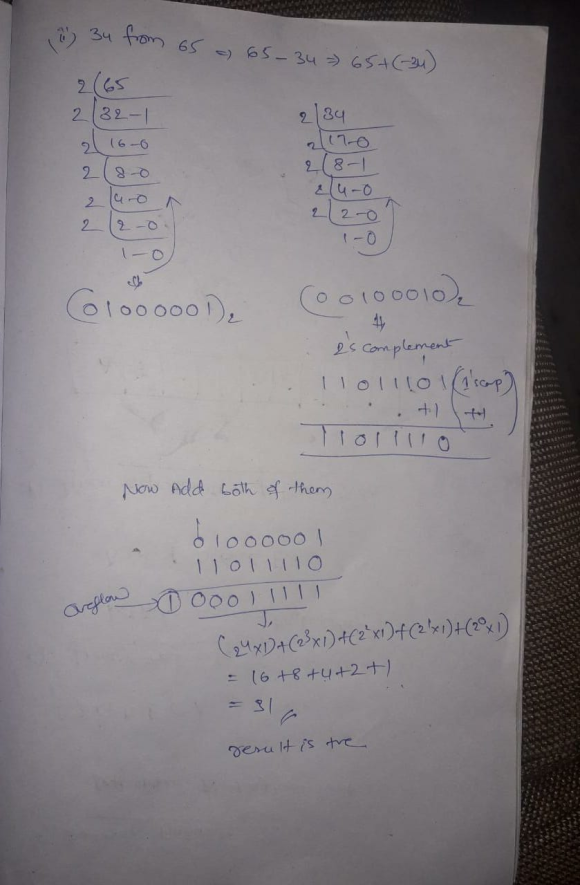 (ii) 34 from 65 ⇒ 65 - 34 ⇒ 65+(-34)
2 65
2 32-1
2 16-0
2 8-0
2 4-0
2 2-0
1-0
⇓
(01000001)2
2 34
2 17-0
2 8-1
2 4-0
2 2-0
1-0
(00100010)2
⇓
2's complement
11011101 (1's comp)
+1 +1
11011110
Now Add both of them
01000001
11011110
overflow → 1 00011111
(2^4×1)+(2^3×1)+(2^2×1)+(2^1×1)+(2^0×1)
= 16+8+4+2+1
= 31
result is +ve